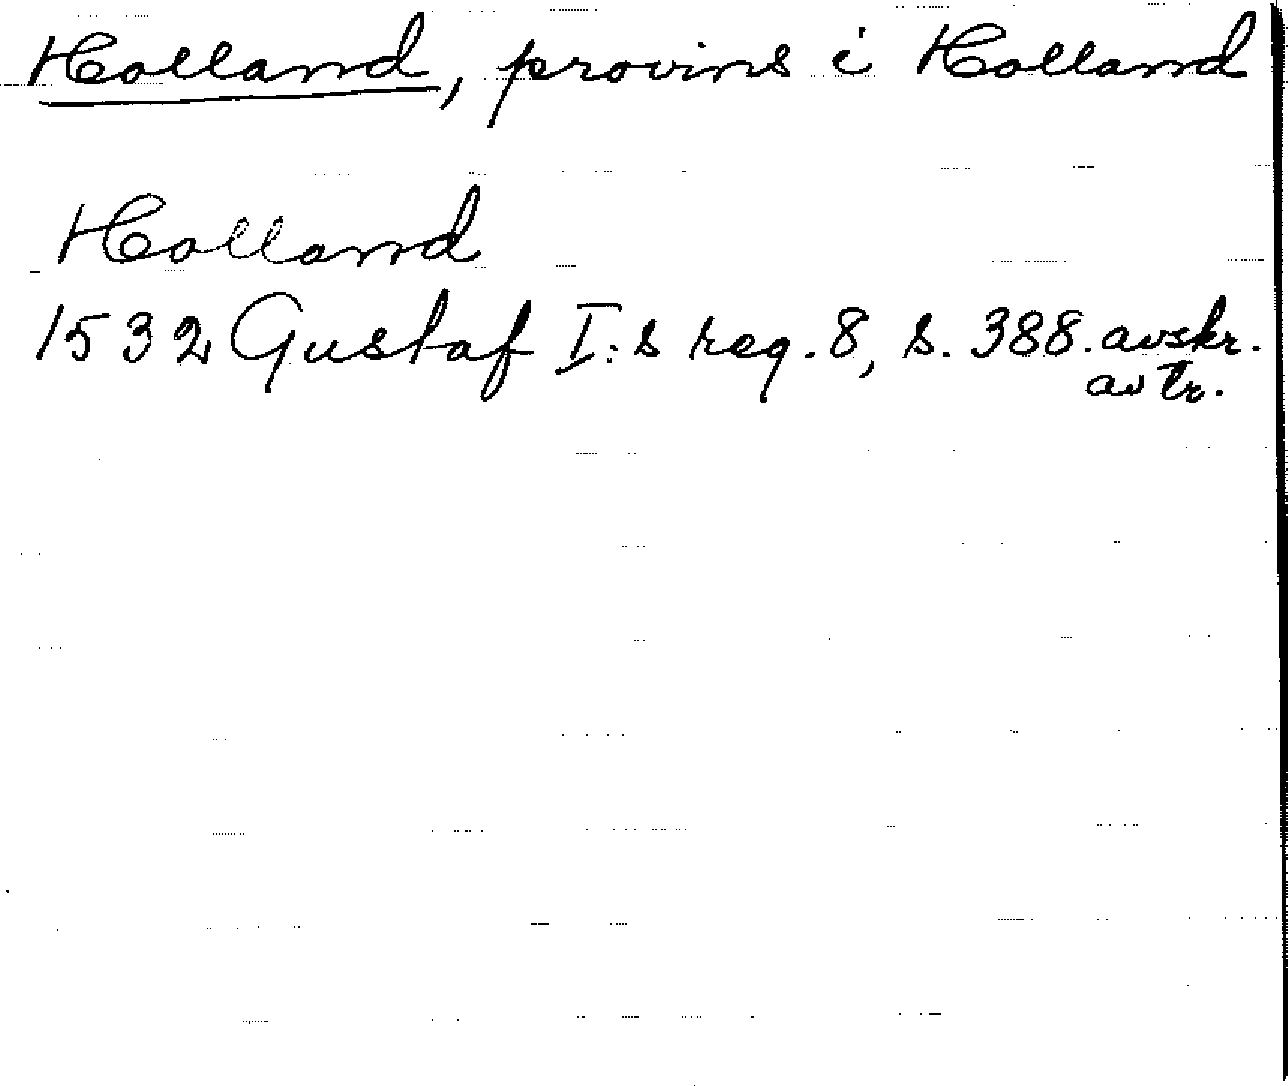 Holland, provins i Holland
Holland
1532 Gustaf I:s reg. 8, s. 388. avskr.
av tr.